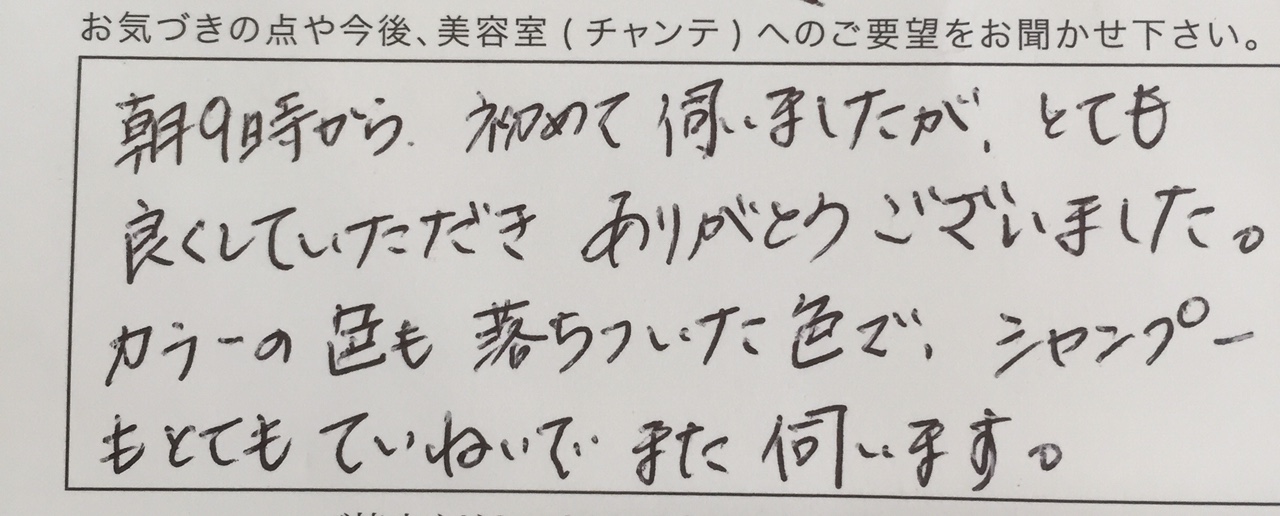 お気づきの点や今後、美容室(チャンテ)へのご要望をお聞かせ下さい。
朝9時から、初めて伺いましたが、とても
良くしていただき ありがとうございました。
カラーの色も落ちついた色で、シャンプー
もとてもていねいで また伺います。